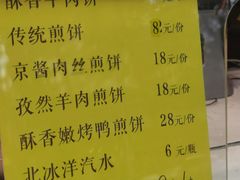 酥香牛肉饼
传统煎饼 8元/份
京酱肉丝煎饼 18元/份
孜然羊肉煎饼 18元/份
酥香嫩烤鸭煎饼 28元/份
北冰洋汽水 6元/瓶